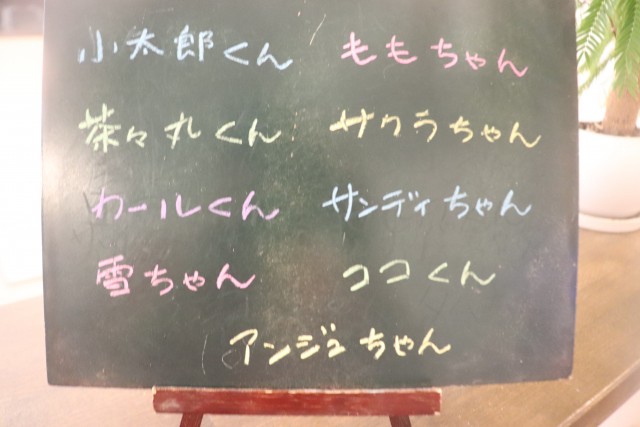 小太郎くん ももちゃん
茶々丸くん サクラちゃん
カールくん サンディちゃん
雪ちゃん ココくん
アンジュちゃん